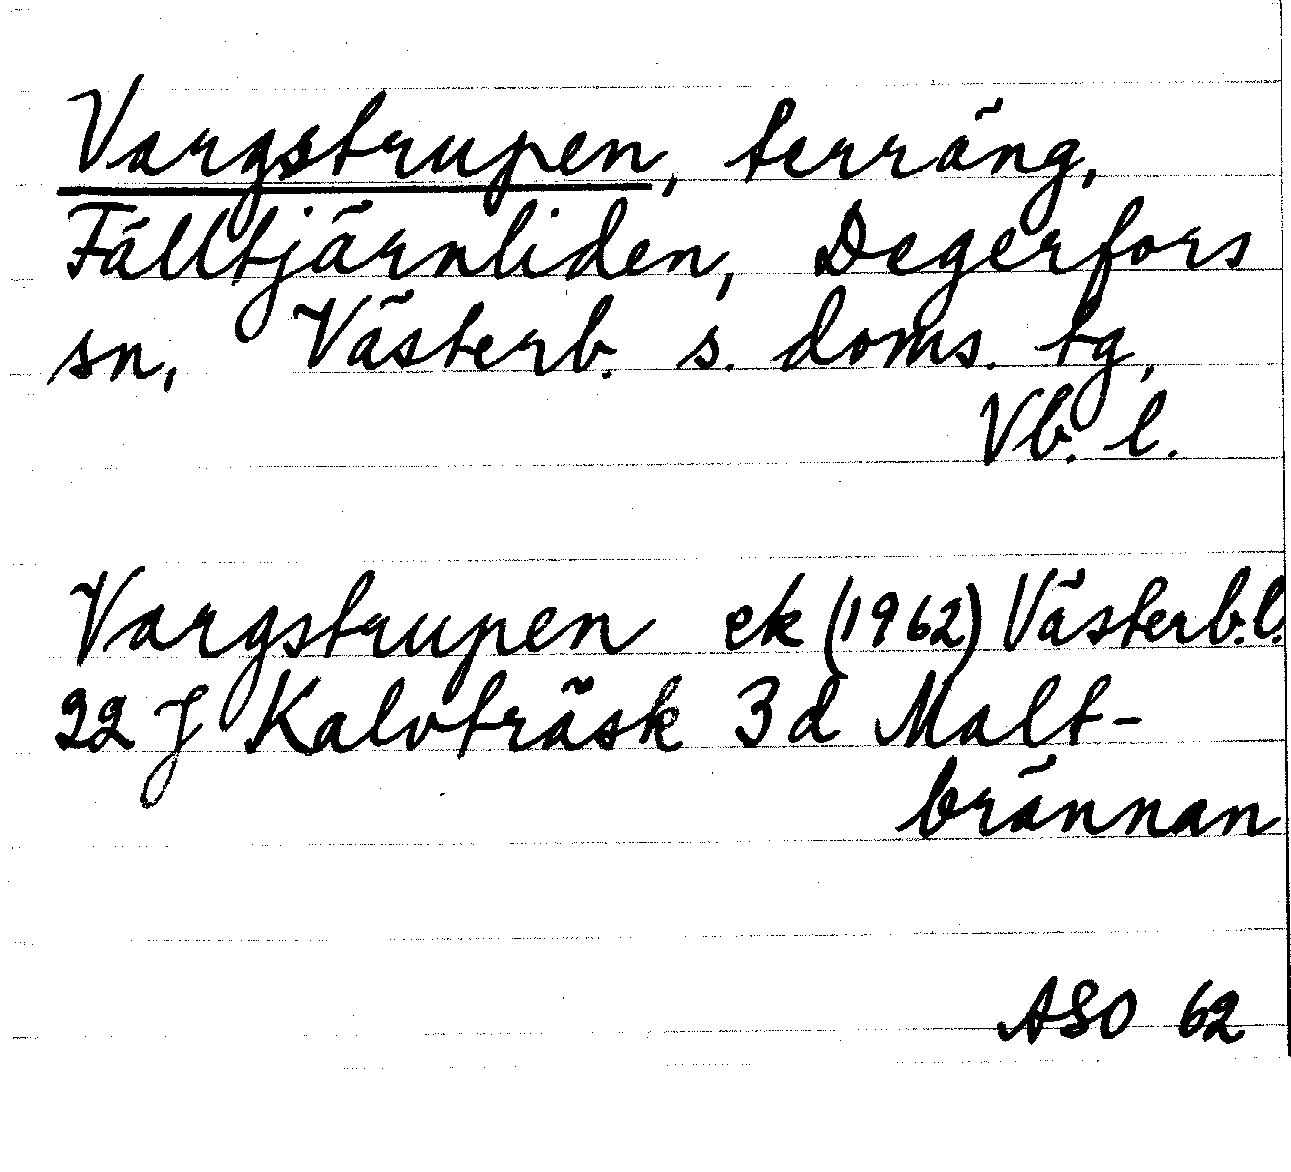 Vargstrupen, terräng,
Fälltjärnliden, Degerfors
sn, Västerb. s. doms. tg,
Vb. l.
Vargstrupen ek (1962) Västerb.l.
22 J Kalvträsk 3d Malt-
brännan
ASO 62